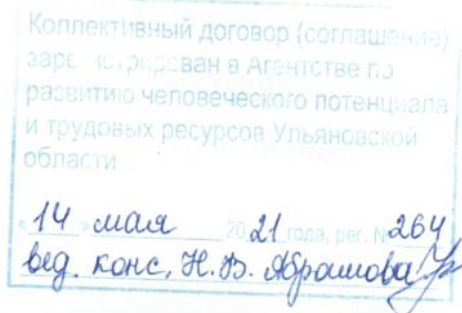 Коллективный договор (соглашение)
зарегистрирован в Агентстве по
развитию человеческого потенциала
и трудовых ресурсов Ульяновской
области
«14» мая 2021 года, рег. №264
вед. конс. Н.В. Абрамова